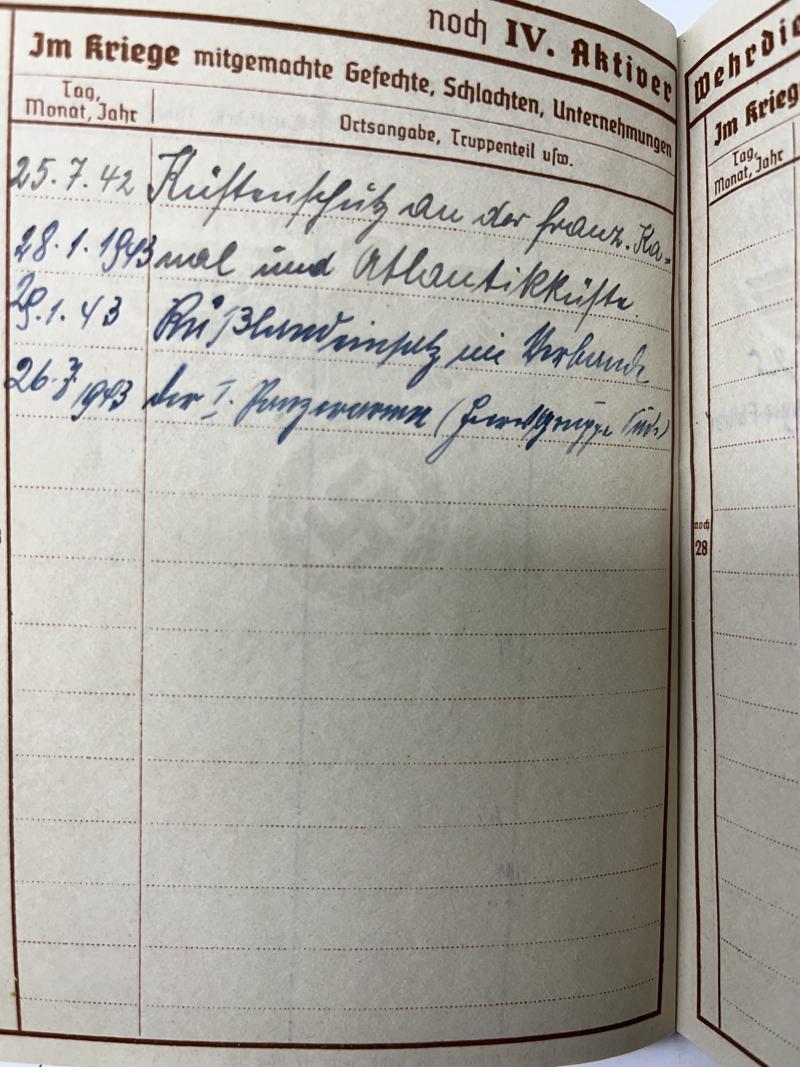 noch IV. Aktiver
Im Kriege mitgemachte Gefechte, Schlachten, Unternehmungen
Tag, Monat, Jahr
Ortsangabe, Truppenteil usw.
25.7.42 Küstenschutz an der franz. Ka-
28.1.1943 nal und Atlantikküste.
29.1.43 Rußlandeinsatz im Verbande
26.3.1943 der I. Panzerarmee (Heeresgruppe Süd)
Wehrdie
Im Kriege
Tag,
Monat, Jahr
noch
28